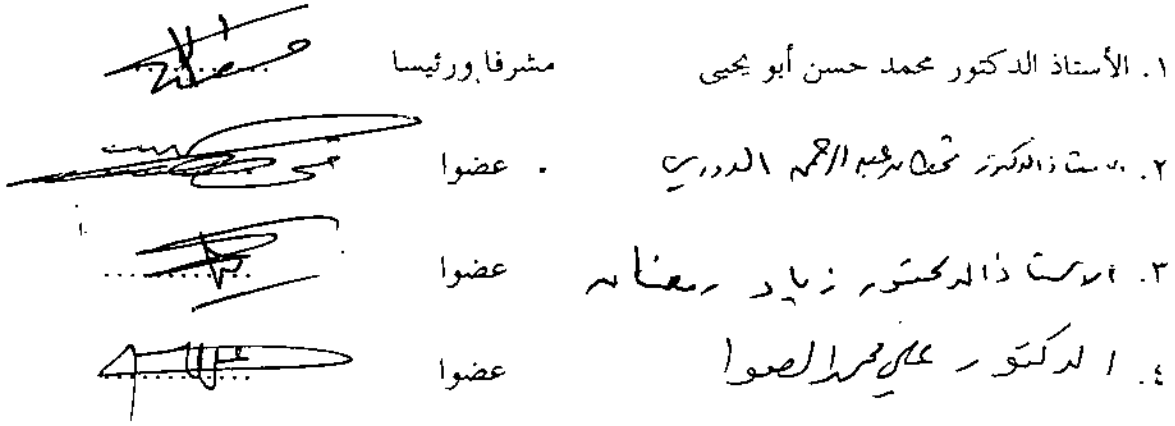 ١. الأستاذ الدكتور محمد حسن أبو يحيى مشرفا ورئيسا
٢. الاستاذ الدكتور قحطان عبد الرحمن الدوري عضوا
٣. الاستاذ الدكتور زياد رمضان عضوا
٤. الدكتور علي محمد الصوا عضوا